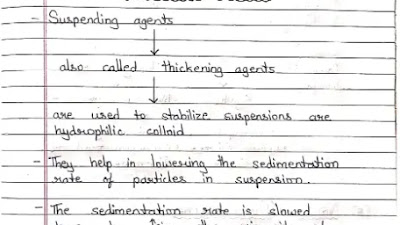 - Suspending agents
also called thickening agents
are used to stabilize suspensions are
hydrophilic colloid
- They help in lowering the sedimentation
rate of particles in suspension.
- The sedimentation rate is slowed